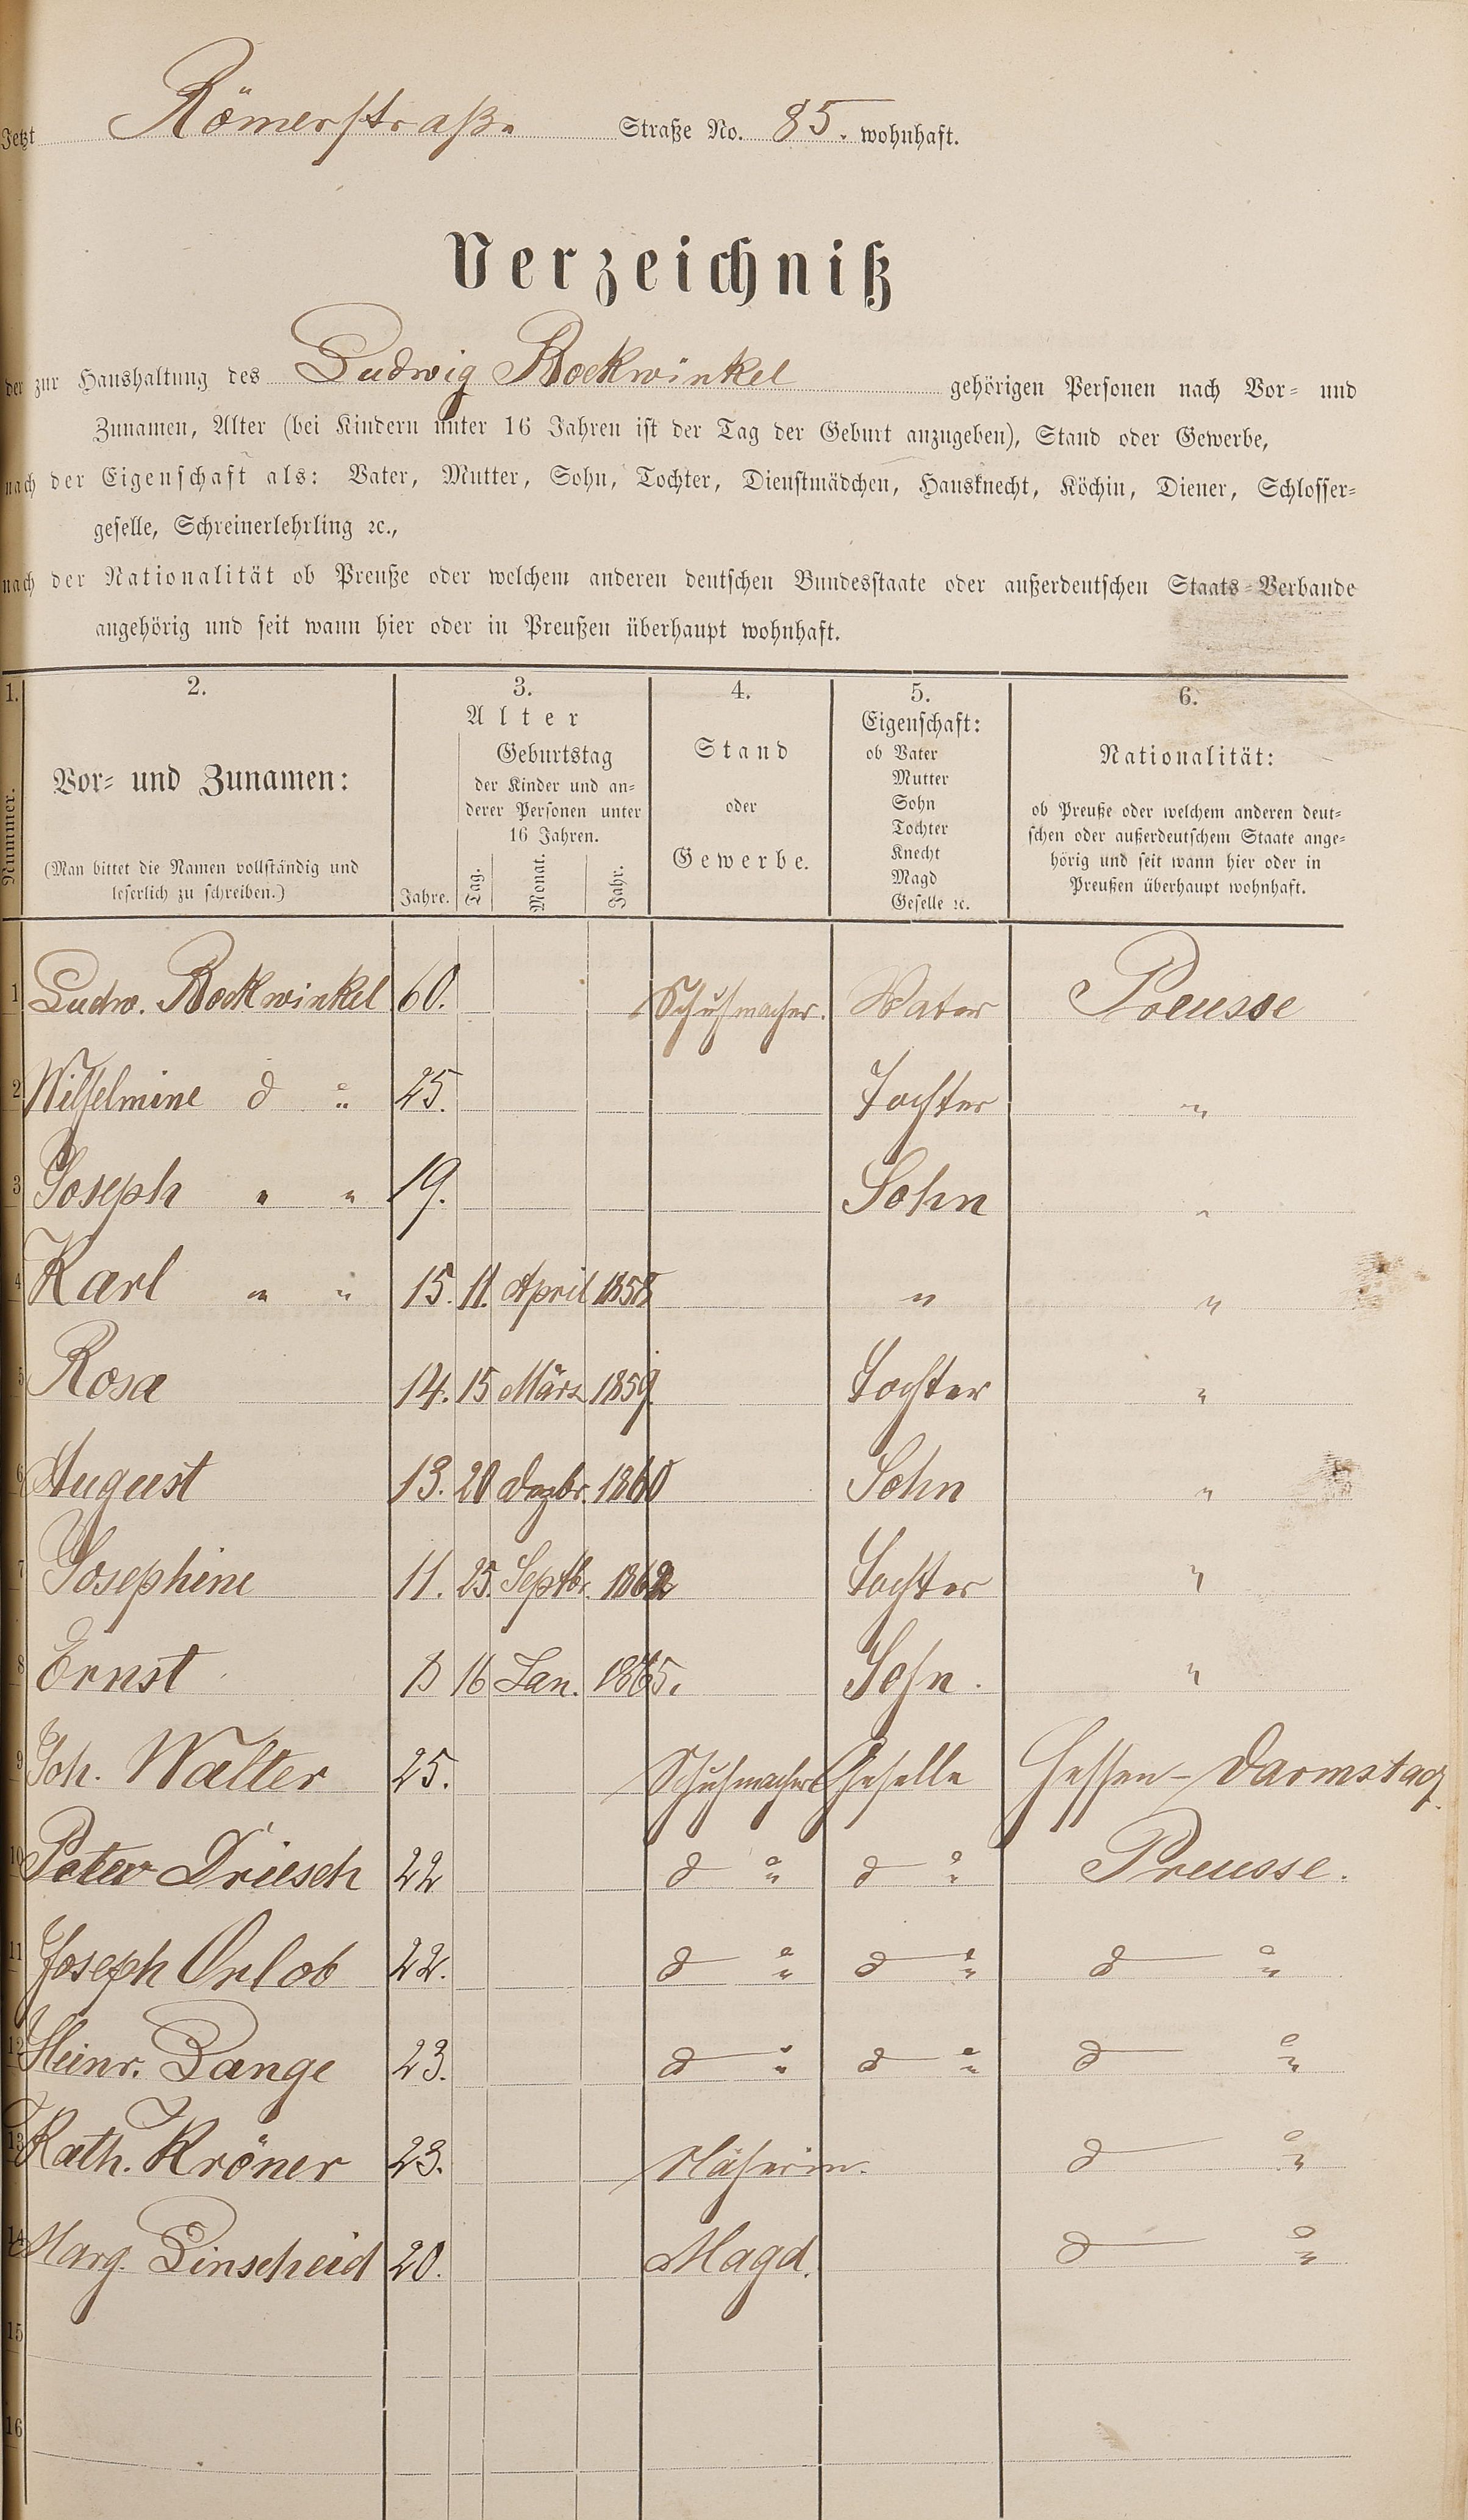 Jetzt Römerstraße Straße No. 85. wohnhaft.
Verzeichniß
der zur Haushaltung des Ludwig Bockwinkel gehörigen Personen nach Vor- und
Zunamen, Alter (bei Kindern unter 16 Jahren ist der Tag der Geburt anzugeben), Stand oder Gewerbe,
nach der Eigenschaft als: Vater, Mutter, Sohn, Tochter, Dienstmädchen, Hausknecht, Köchin, Diener, Schlosser-
geselle, Schreinerlehrling ꝛc.,
nach der Nationalität ob Preuße oder welchem anderen deutschen Bundesstaate oder außerdeutschen Staats-Verbande
angehörig und seit wann hier oder in Preußen überhaupt wohnhaft.
1. 2. 3. 4. 5. 6.
Nummer.
Vor- und Zunamen:
(Man bittet die Namen vollständig und
leserlich zu schreiben.)
Alter
Jahre.
Geburtstag
der Kinder und an-
derer Personen unter
16 Jahren.
Tag. Monat. Jahr.
Stand
oder
Gewerbe.
Eigenschaft:
ob Vater
Mutter
Sohn
Tochter
Knecht
Magd
Geselle ꝛc.
Nationalität:
ob Preuße oder welchem anderen deut-
schen oder außerdeutschem Staate ange-
hörig und seit wann hier oder in
Preußen überhaupt wohnhaft.
1 Ludw. Bockwinkel 60. Schuhmacher. Vater Preusse
2 Wilhelmine do " 25. Tochter "
3 Joseph " " 19. Sohn "
4 Karl " " 15. 11. April 1858 " "
5 Rosa 14. 15 März 1859. Tochter "
6 August 13. 20 Dezbr. 1860 Sohn "
7 Josephine 11. 25. Septbr. 1862 Tochter "
8 Ernst 16 Jan. 1865. Sohn. "
9 Joh. Walter 25. Schuhmacher Geselle Hessen-Darmstadt.
10 Peter Driesch 22 do " do " Preusse.
11 Joseph Orlob 22. do " do " do "
12 Heinr. Lange 23. do " do " do "
13 Kath. Kröner 23. Näherin. do "
14 Marg. Linscheid 20. Magd. do "
15
16